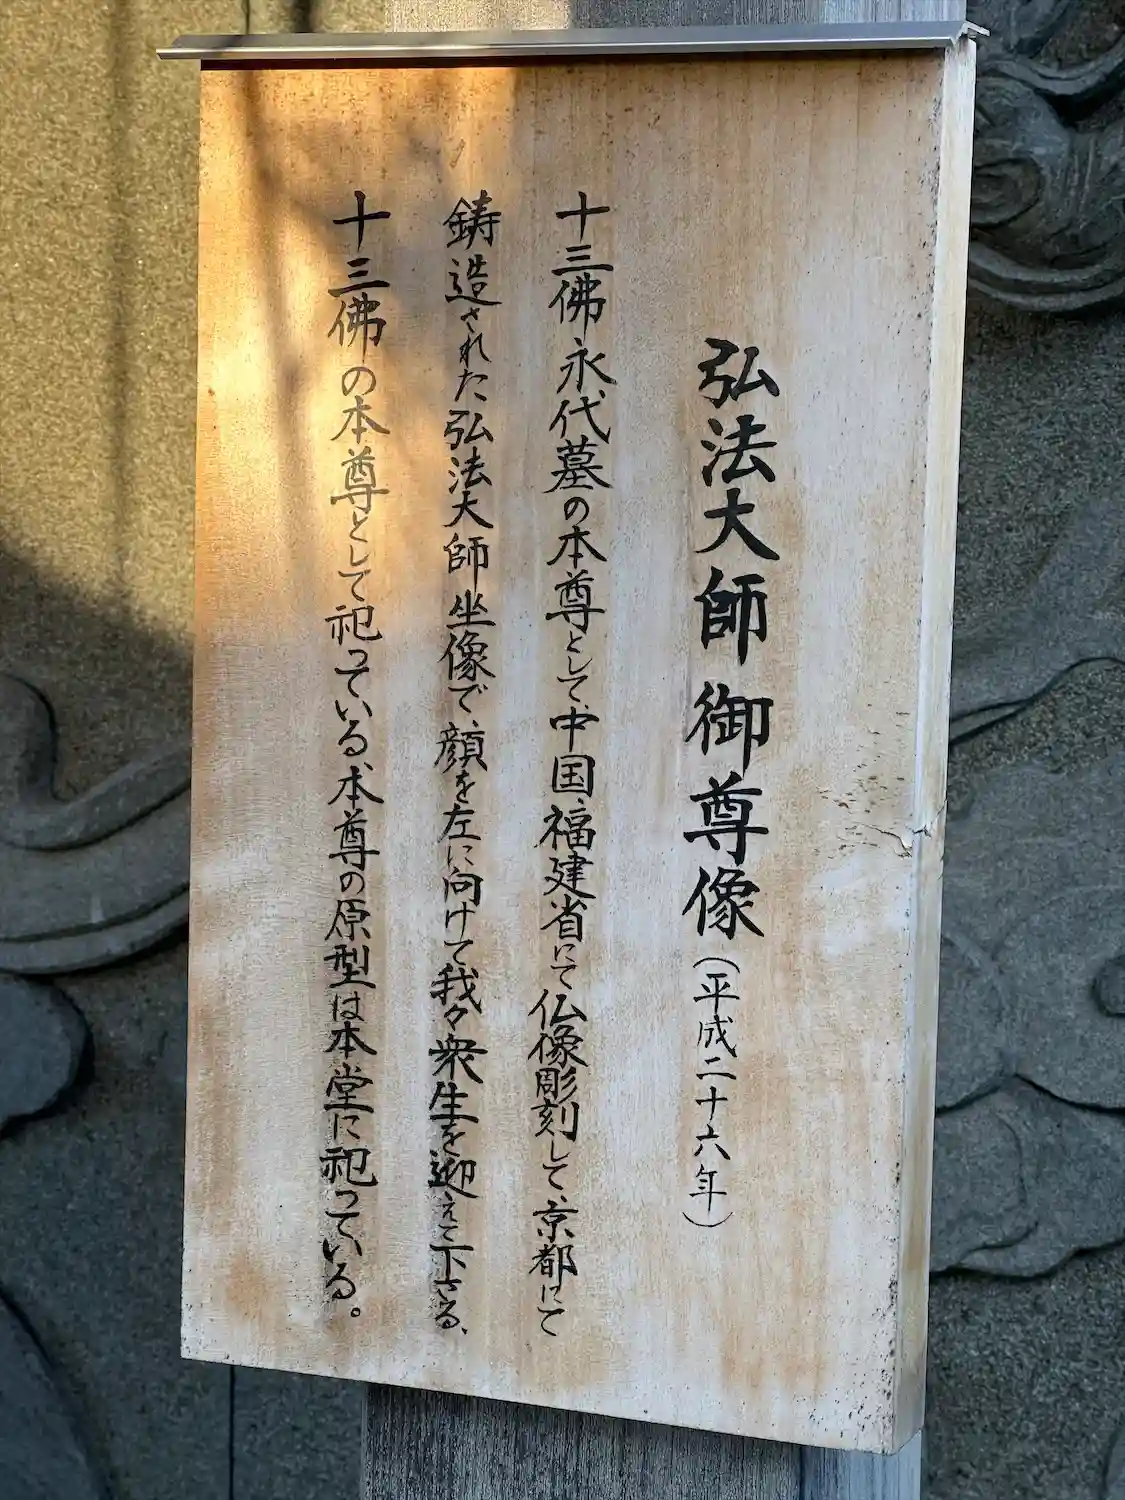 弘法大師 御尊像（平成二十六年）
十三佛永代墓の本尊として、中国、福建省にて仏像彫刻して、京都にて
鋳造された弘法大師坐像で、顔を左に向けて我々衆生を迎えて下さる、
十三佛の本尊として祀っている、本尊の原型は本堂に祀っている。